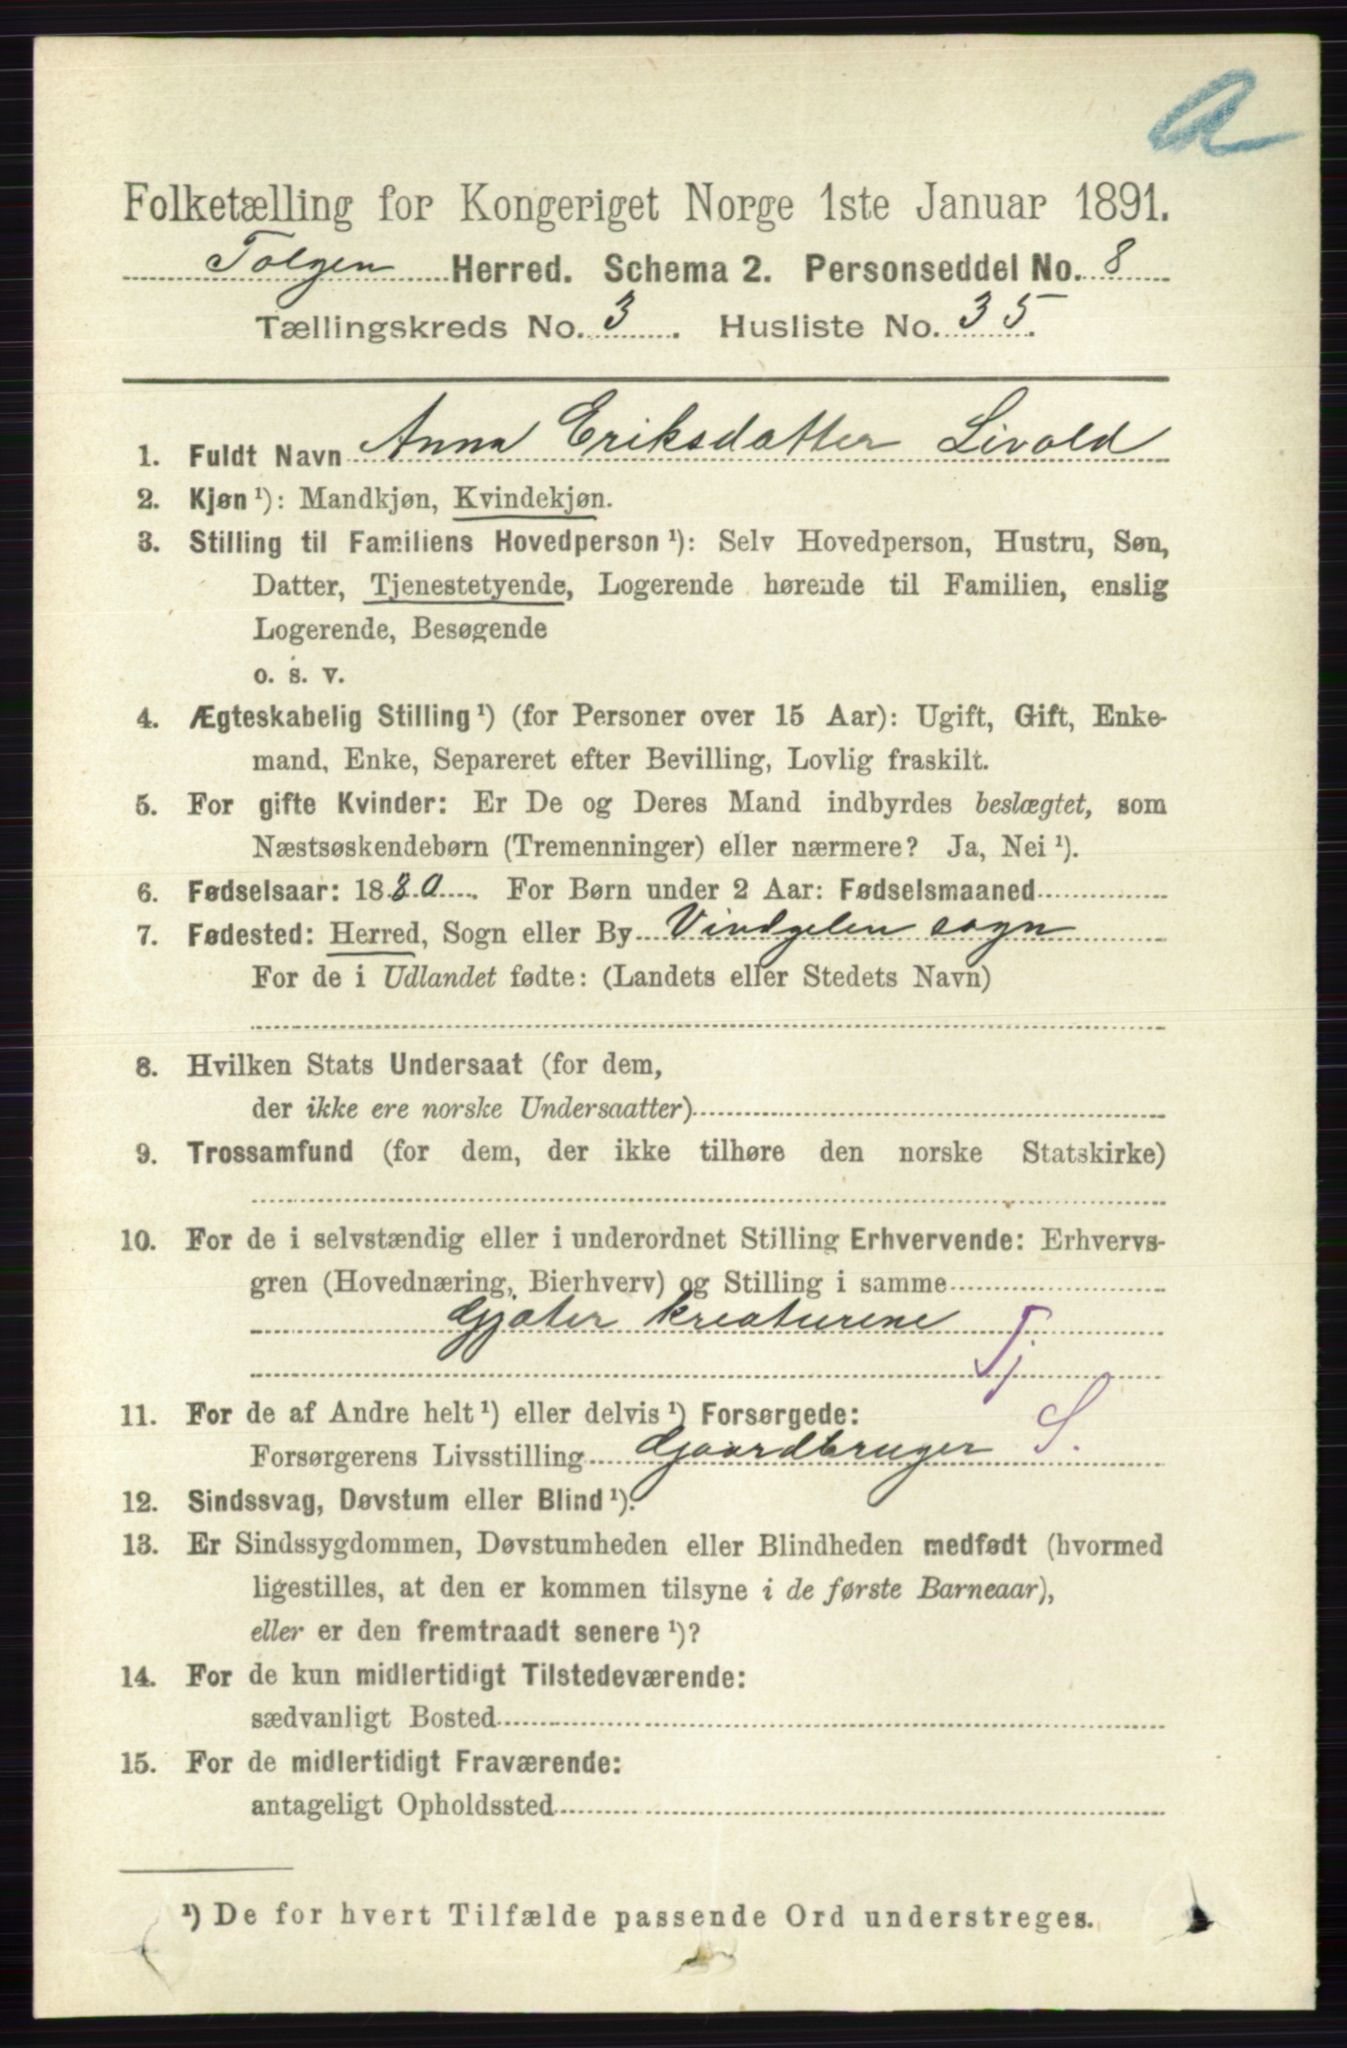 A
Folketælling for Kongeriget Norge 1ste Januar 1891.
Tolgen Herred. Schema 2. Personseddel No. 8
Tællingskreds No. 3. Husliste No. 35.
1. Fuldt Navn Anna Eriksdatter Livold
2. Kjøn ¹): Mandkjøn, Kvindekjøn.
3. Stilling til Familiens Hovedperson ¹): Selv Hovedperson, Hustru, Søn,
Datter, Tjenestetyende, Logerende hørende til Familien, enslig
Logerende, Besøgende
o. s. v.
4. Ægteskabelig Stilling ¹) (for Personer over 15 Aar): Ugift, Gift, Enke-
mand, Enke, Separeret efter Bevilling, Lovlig fraskilt.
5. For gifte Kvinder: Er De og Deres Mand indbyrdes beslægtet, som
Næstsøskendebørn (Tremenninger) eller nærmere? Ja, Nei ¹).
6. Fødselsaar: 1880. For Børn under 2 Aar: Fødselsmaaned
7. Fødested: Herred, Sogn eller By Vindgelen sogn
For de i Udlandet fødte: (Landets eller Stedets Navn)
8. Hvilken Stats Undersaat (for dem,
der ikke ere norske Undersaatter)
9. Trossamfund (for dem, der ikke tilhøre den norske Statskirke)
10. For de i selvstændig eller i underordnet Stilling Erhvervende: Erhvervs-
gren (Hovednæring, Bierhverv) og Stilling i samme
Gjæter kreaturene
Tj
11. For de af Andre helt ¹) eller delvis ¹) Forsørgede:
Forsørgerens Livsstilling Gaardbruger S.
12. Sindssvag, Døvstum eller Blind ¹).
13. Er Sindssygdommen, Døvstumheden eller Blindheden medfødt (hvormed
ligestilles, at den er kommen tilsyne i de første Barneaar),
eller er den fremtraadt senere ¹)?
14. For de kun midlertidigt Tilstedeværende:
sædvanligt Bosted
15. For de midlertidigt Fraværende:
antageligt Opholdssted
¹) De for hvert Tilfælde passende Ord understreges.